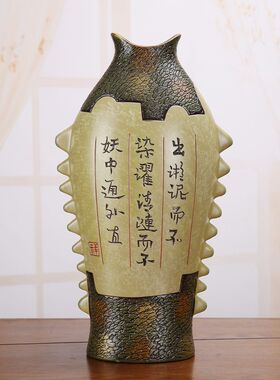 出淤泥而不
染濯清漣而不
妖中通外直